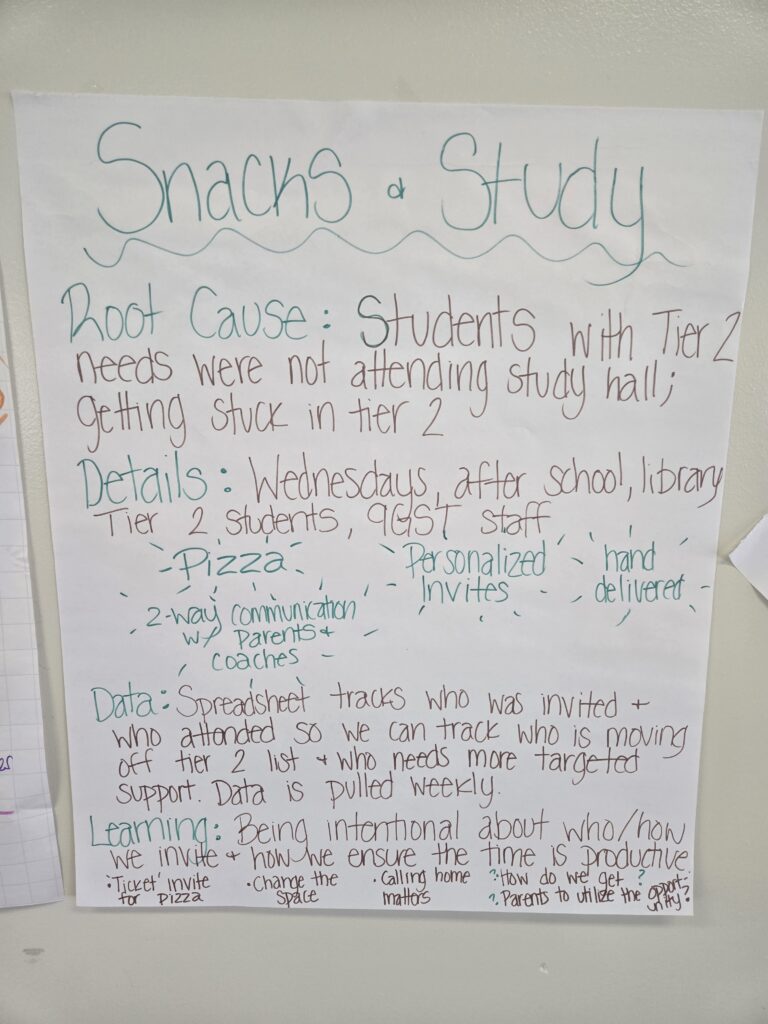 Snacks & Study
Root Cause: Students with Tier 2
needs were not attending study hall;
getting stuck in tier 2
Details: Wednesdays, after school, library
Tier 2 students, 9GST staff
Pizza
Personalized
Invites
hand
delivered
2-way communication
w/ Parents +
coaches
Data: Spreadsheet tracks who was invited +
who attended so we can track who is moving
off tier 2 list + who needs more targeted
support. Data is pulled weekly.
Learning: Being intentional about who/how
we invite + how we ensure the time is productive
• 'Ticket' invite
for pizza
• Change the
space
• Calling home
matters
? How do we get ?
? Parents to utilize the opport-
unity?